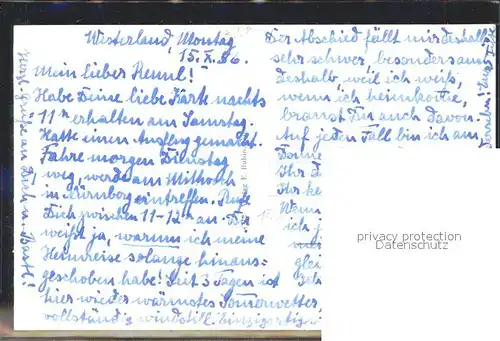 Westerland, Montag
15. X. 86.
Mein lieber
Habe Deine liebe Karte nachts
11 h erhalten am Samstag.
Hatte einen Ausflug gemacht.
Fahre morgen Dienstag
weg, werde am Mittwoch
in Nürnberg eintreffen. Rufe
Dich zwischen 11-12 h an. Du
weißt ja, warum ich meine
Heimreise solange hinaus=
geschoben habe! Seit 3 Tagen ist
hier wieder wärmstes Sommerwetter,
vollständig windstill. Einzigartig
Der Abschied fällt mir deshalb
sehr schwer, besonders aus
deshalb weil ich weiß,
wenn ich heimkomme,
braust Du auch davon.
Auf jeden Fall bin ich am
Donne
Ihr
Ihr
Wenn
ich
glei
privacy protection
Datenschutz